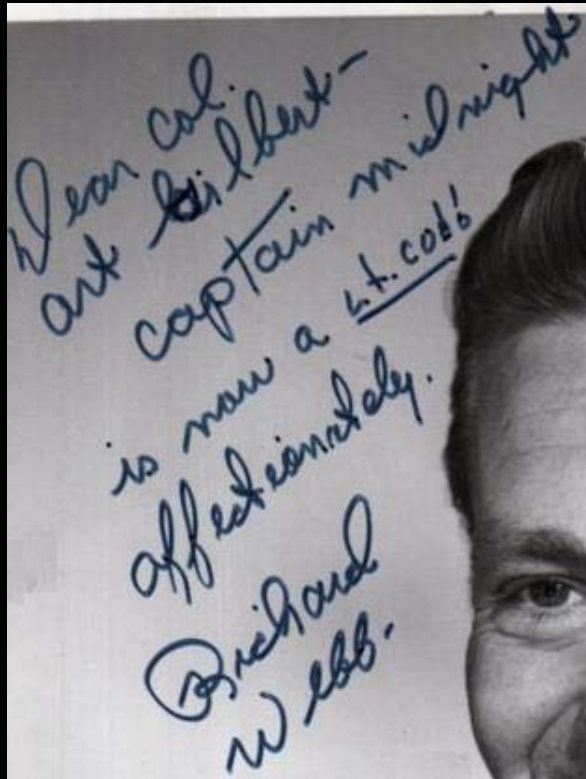 Dear Col.
Art Gilbert-
captain midnight
is now a Lt. Col!
affectionately.
Richard
Webb.